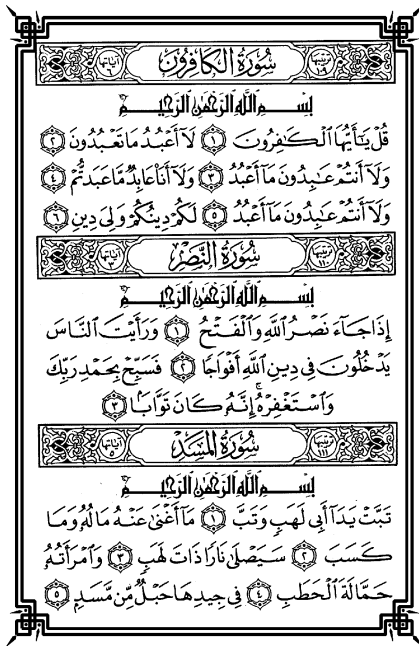 ترتيبها ١٠٩ سورة الكافرون آياتها ٦
بسم الله الرحمن الرحيم
قُلْ يَٰٓأَيُّهَا ٱلْكَٰفِرُونَ ١ لَآ أَعْبُدُ مَا تَعْبُدُونَ ٢
وَلَآ أَنتُمْ عَٰبِدُونَ مَآ أَعْبُدُ ٣ وَلَآ أَنَا۠ عَابِدٌ مَّا عَبَدتُّمْ ٤
وَلَآ أَنتُمْ عَٰبِدُونَ مَآ أَعْبُدُ ٥ لَكُمْ دِينُكُمْ وَلِىَ دِينِ ٦
ترتيبها ١١٠ سورة النصر آياتها ٣
بسم الله الرحمن الرحيم
إِذَا جَآءَ نَصْرُ ٱللَّهِ وَٱلْفَتْحُ ١ وَرَأَيْتَ ٱلنَّاسَ
يَدْخُلُونَ فِى دِينِ ٱللَّهِ أَفْوَاجًا ٢ فَسَبِّحْ بِحَمْدِ رَبِّكَ
وَٱسْتَغْفِرْهُ ۚ إِنَّهُۥ كَانَ تَوَّابًۢا ٣
ترتيبها ١١١ سورة المسد آياتها ٥
بسم الله الرحمن الرحيم
تَبَّتْ يَدَآ أَبِى لَهَبٍ وَتَبَّ ١ مَآ أَغْنَىٰ عَنْهُ مَالُهُۥ وَمَا
كَسَبَ ٢ سَيَصْلَىٰ نَارًا ذَاتَ لَهَبٍ ٣ وَٱمْرَأَتُهُۥ
حَمَّالَةَ ٱلْحَطَبِ ٤ فِى جِيدِهَا حَبْلٌ مِّن مَّسَدٍۭ ٥